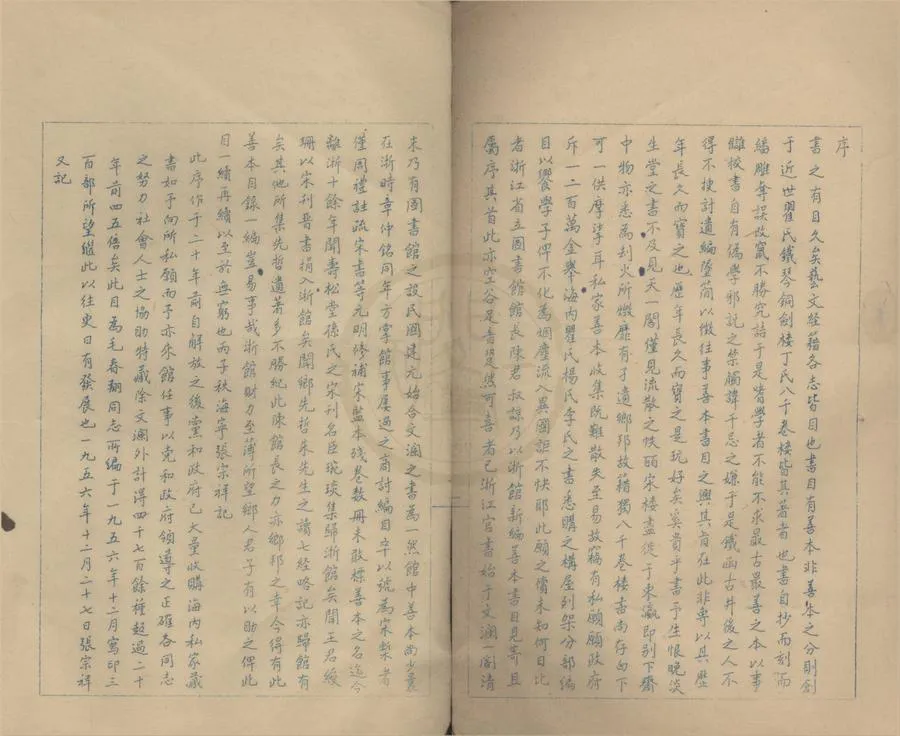 序
書之有目久矣藝文經籍各志皆目也書目自有善本非善本之分則創
于近世瞿氏鐵琴銅劍樓丁氏八千卷樓皆其著者也書自抄而刻而
繙雕奪誤故竄不勝究詰于是嗜學者不能不求最古最善之本以事
讎校書自有偽學邪説之禁觸諱干忌之嫌于是鐵函古井後之人不
得不搜討遺編墜簡以徵往事善本書目之興其旨在此非專以其歷
年長久而寶之也歷年長久而寶之是玩好矣奚貴乎書予生恨晚淡
生堂之書不及見天一閣僅見流散之帙皕宋樓盡從于東瀛即别下齋
中物亦悉為刦火所燬靡有孑遺鄉邦故藉獨八千卷樓書尚存白下
可一供摩挲耳私家善本收集既難散失至易故竊有私願願政府
斥一二百萬金舉海内瞿氏楊氏李氏之書悉購之構屋列架分部編
目以饗學子俾不化為烟塵流入異國詎不快耶此願之償未知何日比
者浙江省立圖書館館長陳君叔諒乃以浙館新編善本書目見寄且
屬序其首此亦空谷足音跫然可喜者已浙江官書始于文瀾一閣清
末乃有圖書館之設民國建元始合文瀾之書為一然館中善本尚少曩
在浙時章仲銘同年方掌館事屢過之商討編目卒以號為宋槧者
僅周禮註疏宋書等元明修補宋監本殘卷數冊未敢標善本之名迄今
離浙十餘年聞壽松堂孫氏之宋刊名臣琬琰集歸浙館矣聞王君綬
珊以宋刊晋書捐入浙館矣聞鄉先哲朱先生之讀七經略記亦歸館有
矣其他所集先哲遺著多不勝紀此陳館長之力亦鄉邦之幸今得有此
善本目錄一編豈易事哉浙館財力至薄所望鄉人君子有以助之俾此
目一續再續以至於無窮也丙子秋海寧張宗祥記
此序作于二十年前自解放之後黨和政府已大量收購海内私家藏
書如予向所私願而予亦來館任事以党和政府領導之正確各同志
之努力社會人士之協助特藏除文瀾外計得四千七百餘種超過二十
年前四五倍矣此目為毛春翔同志所編于一九五六年十二月寫印三
百部所望繼此以往更日有發展也一九五六年十二月二十七日張宗祥
又記